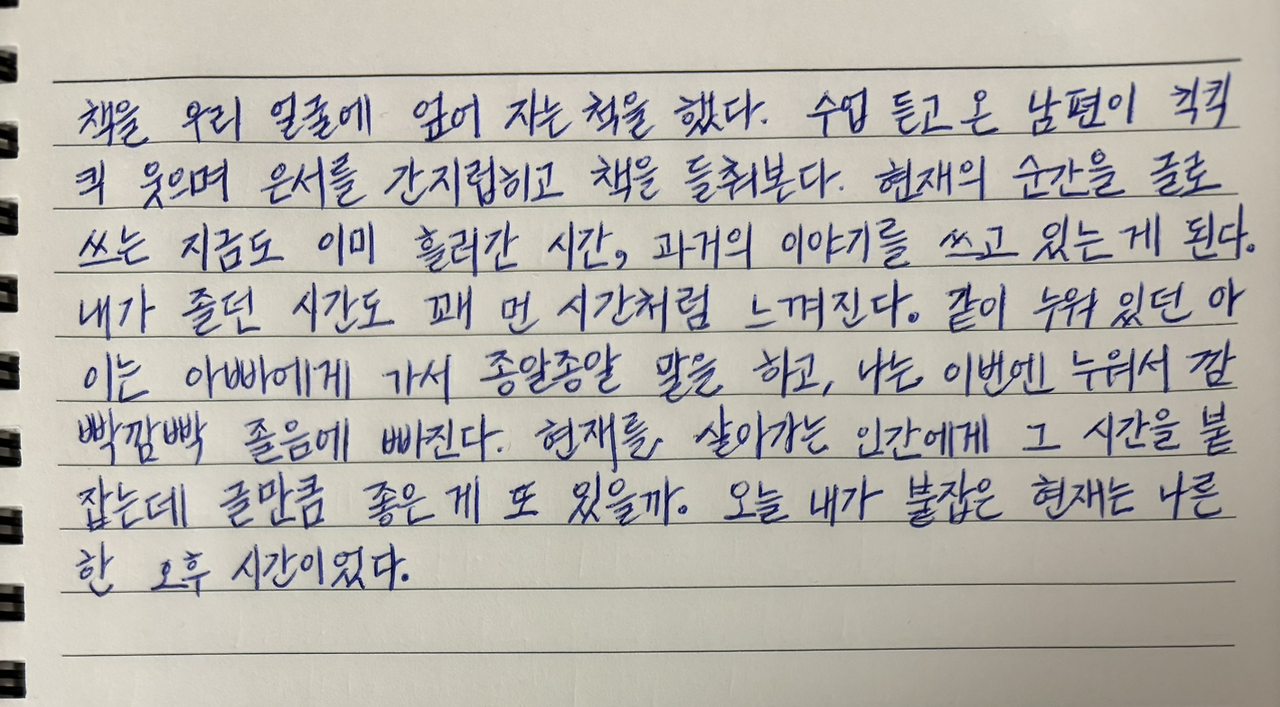 책을 우리 얼굴에 얹어 자는 척을 했다. 수업 듣고 온 남편이 킥킥
킥 웃으며 은서를 간지럽히고 책을 들춰본다. 현재의 순간을 글로
쓰는 지금도 이미 흘러간 시간, 과거의 이야기를 쓰고 있는 게 된다.
내가 졸던 시간도 꽤 먼 시간처럼 느껴진다. 같이 누워 있던 아
이는 아빠에게 가서 종알종알 말을 하고, 나는 이번엔 누워서 깜
빡깜빡 졸음에 빠진다. 현재를 살아가는 인간에게 그 시간을 붙
잡는데 글만큼 좋은 게 또 있을까. 오늘 내가 붙잡은 현재는 나른
한 오후 시간이었다.